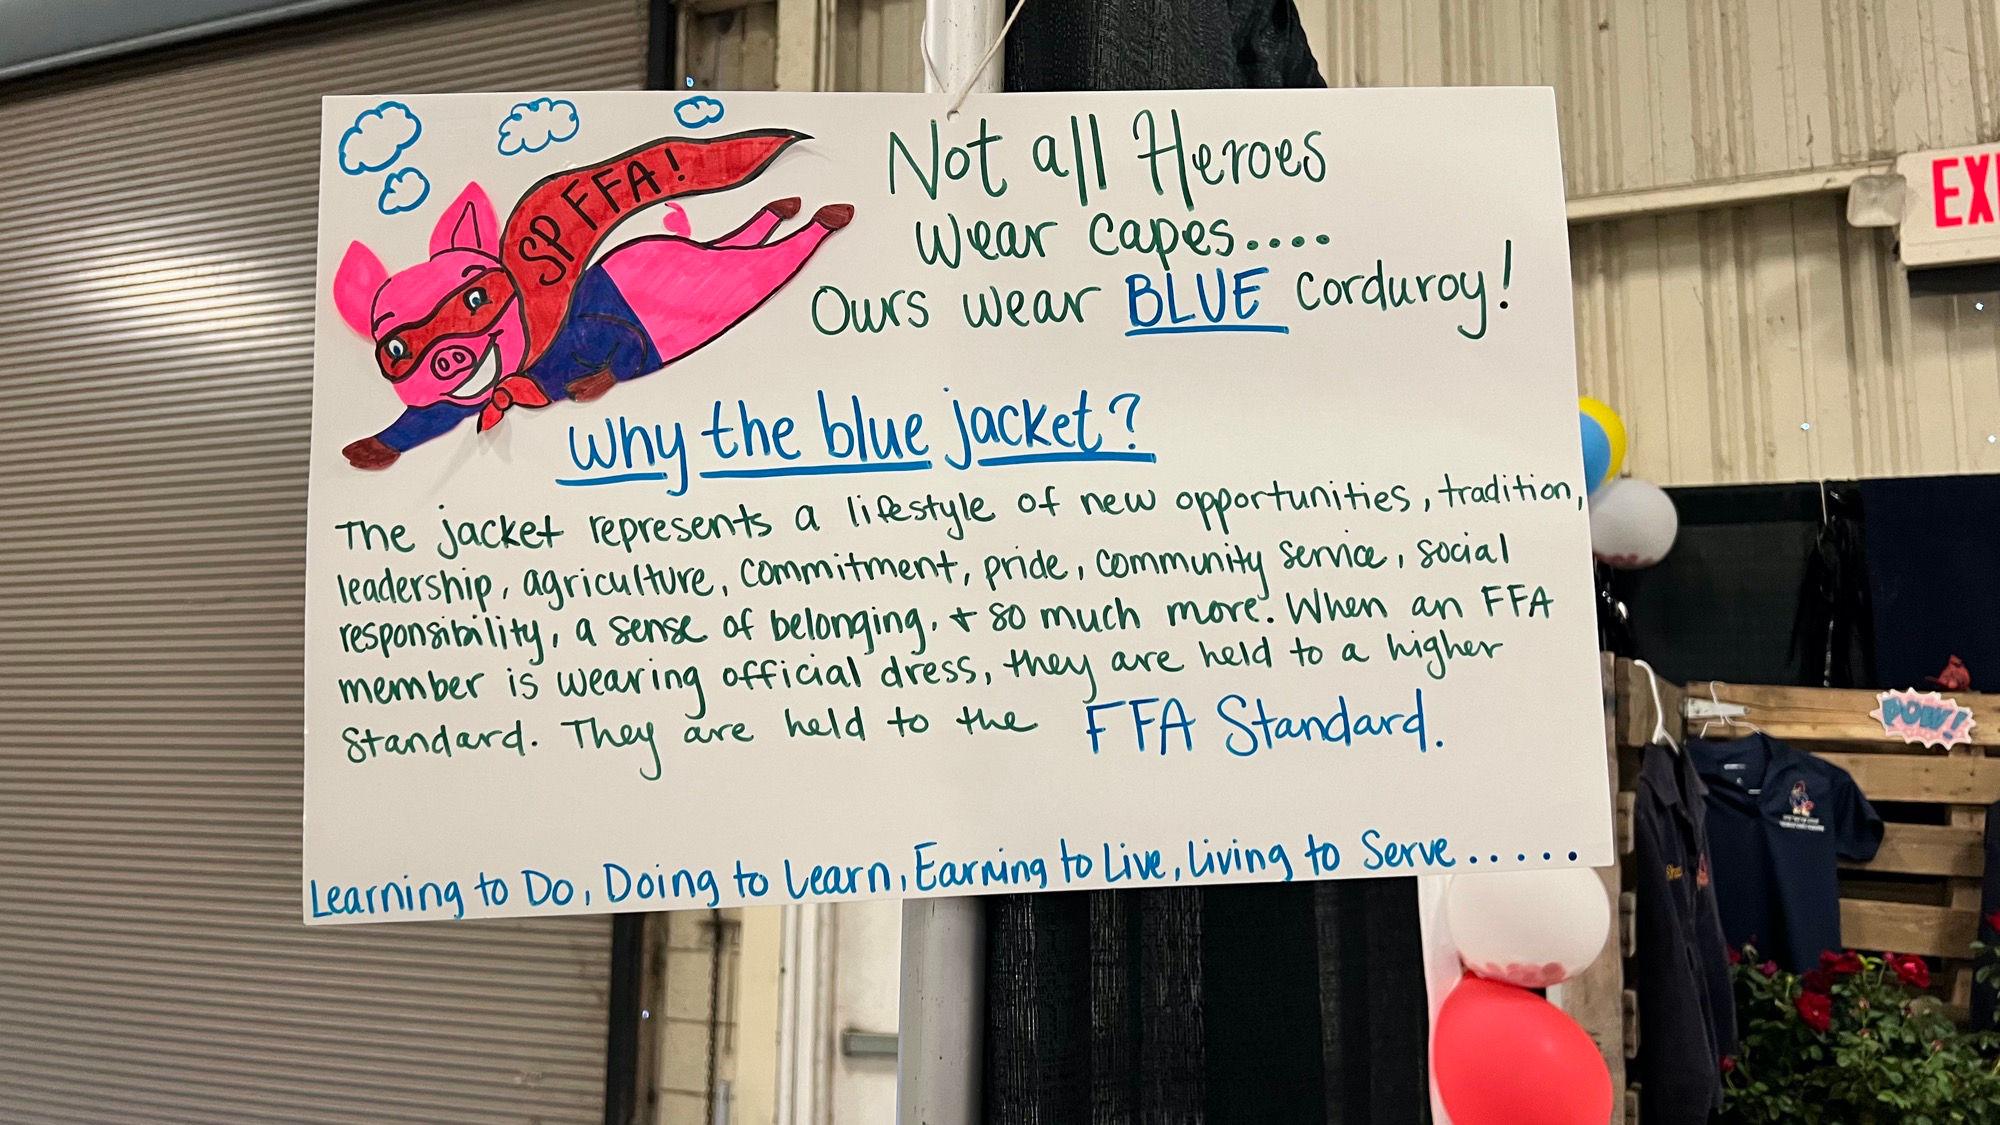 SP FFA!
Not all Heroes
wear capes....
Ours wear BLUE corduroy!
Why the blue jacket?
The jacket represents a lifestyle of new opportunities, tradition,
leadership, agriculture, commitment, pride, community service, social
responsibility, a sense of belonging, + so much more. When an FFA
member is wearing official dress, they are held to a higher
standard. They are held to the FFA Standard.
Learning to Do, Doing to Learn, Earning to Live, Living to Serve.....
EXI
POW!